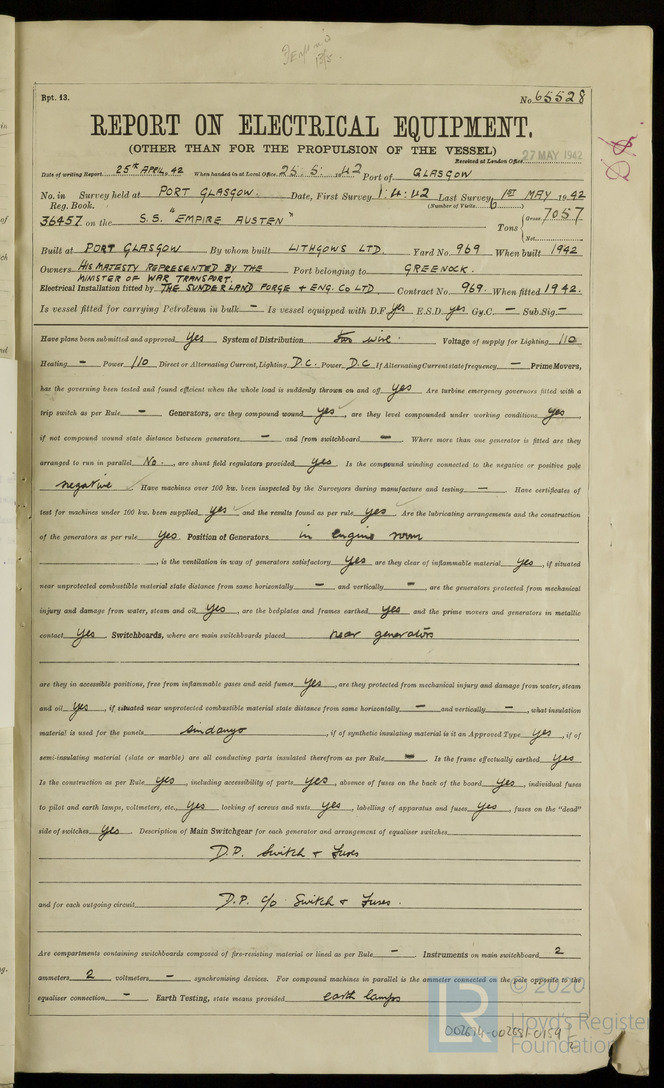 Rpt. 13.
No. 65528
REPORT ON ELECTRICAL EQUIPMENT.
(OTHER THAN FOR THE PROPULSION OF THE VESSEL)
Received at London Office 27 MAY 1942
Date of writing Report 25th APRIL, 42 When handed in at Local Office 25.5.1942 Port of GLASGOW
No. in Survey held at PORT GLASGOW. Date, First Survey 1.4.42 Last Survey 1st MAY 1942
Reg. Book. (Number of Visits 6)
36457 on the S.S. "EMPIRE AUSTEN" Tons Gross 7057
Net
Built at PORT GLASGOW By whom built LITHGOWS LTD. Yard No. 969 When built 1942
Owners HIS MAJESTY REPRESENTED BY THE Port belonging to GREENOCK.
MINISTER OF WAR TRANSPORT.
Electrical Installation fitted by THE SUNDERLAND FORGE + ENG. CO LTD Contract No. 969. When fitted 1942.
Is vessel fitted for carrying Petroleum in bulk - Is vessel equipped with D.F. yes E.S.D. yes Gy.C. - Sub.Sig. -
Have plans been submitted and approved yes System of Distribution two wire. Voltage of supply for Lighting 110
Heating - Power 110 Direct or Alternating Current, Lighting D.C. Power D.C If Alternating Current state frequency - Prime Movers,
has the governing been tested and found efficient when the whole load is suddenly thrown on and off yes Are turbine emergency governors fitted with a
trip switch as per Rule - Generators, are they compound wound yes, are they level compounded under working conditions yes,
if not compound wound state distance between generators - and from switchboard - Where more than one generator is fitted are they
arranged to run in parallel No., are shunt field regulators provided yes Is the compound winding connected to the negative or positive pole
negative. Have machines over 100 kw. been inspected by the Surveyors during manufacture and testing - Have certificates of
test for machines under 100 kw. been supplied yes and the results found as per rule yes Are the lubricating arrangements and the construction
of the generators as per rule yes. Position of Generators in engine room
, is the ventilation in way of generators satisfactory yes are they clear of inflammable material yes, if situated
near unprotected combustible material state distance from same horizontally - and vertically -, are the generators protected from mechanical
injury and damage from water, steam and oil yes, are the bedplates and frames earthed yes and the prime movers and generators in metallic
contact yes Switchboards, where are main switchboards placed near generators
are they in accessible positions, free from inflammable gases and acid fumes yes, are they protected from mechanical injury and damage from water, steam
and oil yes, if situated near unprotected combustible material state distance from same horizontally - and vertically -, what insulation
material is used for the panels sindanyo, if of synthetic insulating material is it an Approved Type yes, if of
semi-insulating material (slate or marble) are all conducting parts insulated therefrom as per Rule - Is the frame effectually earthed yes
Is the construction as per Rule yes, including accessibility of parts yes, absence of fuses on the back of the board yes, individual fuses
to pilot and earth lamps, voltmeters, etc. yes locking of screws and nuts yes, labelling of apparatus and fuses yes, fuses on the "dead"
side of switches yes. Description of Main Switchgear for each generator and arrangement of equaliser switches
D.P. Switch + Fuses
and for each outgoing circuit D.P. c/o Switch + Fuses.
Are compartments containing switchboards composed of fire-resisting material or lined as per Rule - Instruments on main switchboard 2
ammeters 2 voltmeters - synchronising devices. For compound machines in parallel is the ammeter connected on the pole opposite to the
equaliser connection - Earth Testing, state means provided earth lamps
© 2020
LR
Lloyd's Register
Foundation